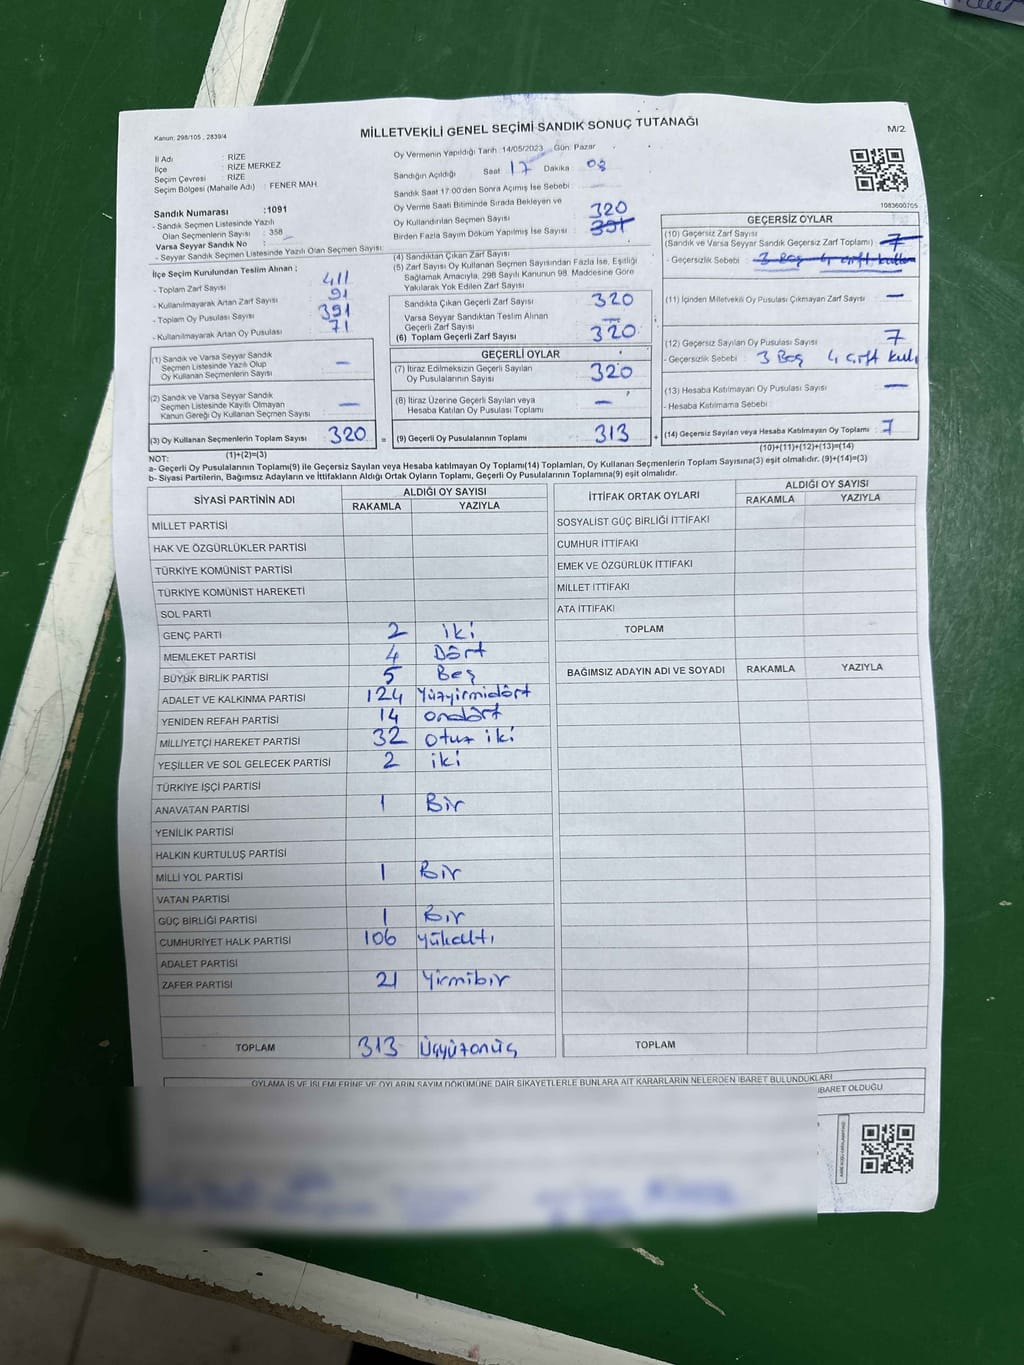 Kanun, 298/105 , 2839/4
MİLLETVEKİLİ GENEL SEÇİMİ SANDIK SONUÇ TUTANAĞI
M/2
İl Adı : RİZE
İlçe : RİZE MERKEZ
Seçim Çevresi : RİZE
Seçim Bölgesi (Mahalle Adı) : FENER MAH.
Sandık Numarası :1091
- Sandık Seçmen Listesinde Yazılı
Olan Seçmenlerin Sayısı : 358
Varsa Seyyar Sandık No :
- Seyyar Sandık Seçmen Listesinde Yazılı Olan Seçmen Sayısı:
Oy Vermenin Yapıldığı Tarih :14/05/2023 Gün: Pazar
Sandığın Açıldığı Saat 17 Dakika 08
Sandık Saat 17:00'den Sonra Açımış İse Sebebi
Oy Verme Saati Bitiminde Sırada Bekleyen ve
Oy Kullandırılan Seçmen Sayısı 320
Birden Fazla Sayım Döküm Yapılmış İse Sayısı : 391
1083600705
İlçe Seçim Kurulundan Teslim Alınan ;
- Toplam Zarf Sayısı 411
- Kullanılmayarak Artan Zarf Sayısı 91
- Toplam Oy Pusulası Sayısı 391
- Kullanılmayarak Artan Oy Pusulası 71
(1) Sandık ve Varsa Seyyar Sandık
Seçmen Listesinde Yazılı Olup
Oy Kullanan Seçmenlerin Sayısı —
(2) Sandık ve Varsa Seyyar Sandık
Seçmen Listesinde Kayıtlı Olmayan
Kanun Gereği Oy Kullanan Seçmen Sayısı —
(3) Oy Kullanan Seçmenlerin Toplam Sayısı 320
(1)+(2)=(3)
(4) Sandıktan Çıkan Zarf Sayısı
(5) Zarf Sayısı Oy Kullanan Seçmen Sayısından Fazla İse, Eşitliği
Sağlamak Amacıyla, 298 Sayılı Kanunun 98. Maddesine Göre
Yakılarak Yok Edilen Zarf Sayısı
Sandıkta Çıkan Geçerli Zarf Sayısı 320
Varsa Seyyar Sandıktan Teslim Alınan
Geçerli Zarf Sayısı —
(6) Toplam Geçerli Zarf Sayısı 320
GEÇERLİ OYLAR
(7) İtiraz Edilmeksizin Geçerli Sayılan
Oy Pusulalarının Sayısı 320
(8) İtiraz Üzerine Geçerli Sayılan veya
Hesaba Katılan Oy Pusulası Toplamı —
= (9) Geçerli Oy Pusulalarının Toplamı 313
GEÇERSİZ OYLAR
(10) Geçersiz Zarf Sayısı
(Sandık ve Varsa Seyyar Sandık Geçersiz Zarf Toplamı) 7
- Geçersizlik Sebebi : 3 Boş 4 çift kullan
(11) İçinden Milletvekili Oy Pusulası Çıkmayan Zarf Sayısı —
(12) Geçersiz Sayılan Oy Pusulası Sayısı 7
- Geçersizlik Sebebi : 3 Boş 4 çift kull
(13) Hesaba Katılmayan Oy Pusulası Sayısı —
- Hesaba Katılmama Sebebi :
+ (14) Geçersiz Sayılan veya Hesaba Katılmayan Oy Toplamı 7
(10)+(11)+(12)+(13)=(14)
NOT:
a- Geçerli Oy Pusulalarının Toplamı(9) ile Geçersiz Sayılan veya Hesaba katılmayan Oy Toplamı(14) Toplamları, Oy Kullanan Seçmenlerin Toplam Sayısına(3) eşit olmalıdır. (9)+(14)=(3)
b- Siyasi Partilerin, Bağımsız Adayların ve İttifakların Aldığı Ortak Oyların Toplamı, Geçerli Oy Pusulalarının Toplamına(9) eşit olmalıdır.
SİYASİ PARTİNİN ADI ALDIĞI OY SAYISI
RAKAMLA YAZIYLA
MİLLET PARTİSİ
HAK VE ÖZGÜRLÜKLER PARTİSİ
TÜRKİYE KOMÜNİST PARTİSİ
TÜRKİYE KOMÜNİST HAREKETİ
SOL PARTİ
GENÇ PARTİ 2 iki
MEMLEKET PARTİSİ 4 Dört
BÜYÜK BİRLİK PARTİSİ 5 Beş
ADALET VE KALKINMA PARTİSİ 124 Yüzyirmidört
YENİDEN REFAH PARTİSİ 14 ondört
MİLLİYETÇİ HAREKET PARTİSİ 32 otuz iki
YEŞİLLER VE SOL GELECEK PARTİSİ 2 iki
TÜRKİYE İŞÇİ PARTİSİ
ANAVATAN PARTİSİ 1 Bir
YENİLİK PARTİSİ
HALKIN KURTULUŞ PARTİSİ
MİLLİ YOL PARTİSİ 1 Bir
VATAN PARTİSİ
GÜÇ BİRLİĞİ PARTİSİ 1 Bir
CUMHURİYET HALK PARTİSİ 106 yükaltı
ADALET PARTİSİ
ZAFER PARTİSİ 21 Yirmibir
TOPLAM 313 Üçyüzonüç
İTTİFAK ORTAK OYLARI ALDIĞI OY SAYISI
RAKAMLA YAZIYLA
SOSYALİST GÜÇ BİRLİĞİ İTTİFAKI
CUMHUR İTTİFAKI
EMEK VE ÖZGÜRLÜK İTTİFAKI
MİLLET İTTİFAKI
ATA İTTİFAKI
TOPLAM
BAĞIMSIZ ADAYIN ADI VE SOYADI RAKAMLA YAZIYLA
TOPLAM
OYLAMA İŞ VE İŞLEMLERİNE VE OYLARIN SAYIM DÖKÜMÜNE DAİR ŞİKAYETLERLE BUNLARA AİT KARARLARIN NELERDEN İBARET BULUNDUKLARI
İBARET OLDUĞU